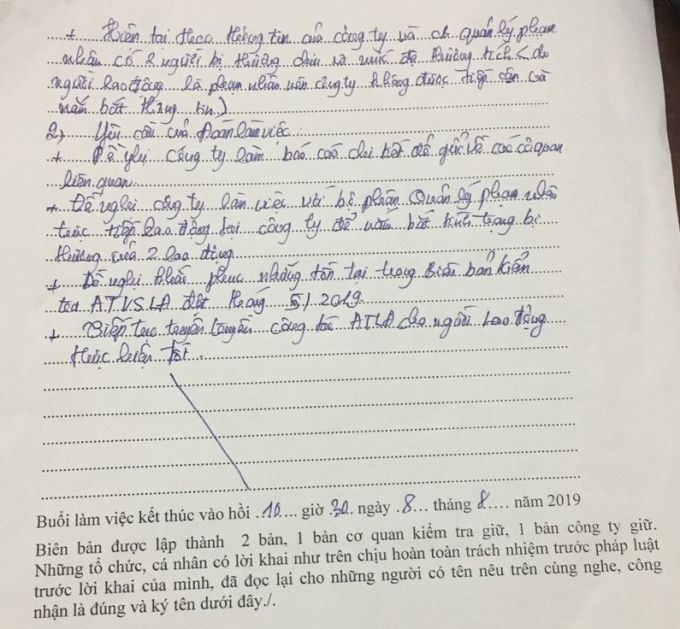 + Hiện tại theo thông tin của công ty và ch quản lý phạm
nhân có 2 người bị thương chưa rõ mức độ thương tích (do
người lao động là phạm nhân nên công ty không được tiếp cận và
nắm bắt thông tin)
2) Yêu cầu của Đoàn làm việc
+ Đề nghị công ty làm báo cáo chi tiết để gửi về các cơ quan
liên quan
+ Đề nghị công ty làm việc với bộ phận Quản lý phạm nhân
trực tiếp lao động tại công ty để nắm bắt tình trạng bị
thương của 2 lao động
+ Đề nghị khắc phục những tồn tại trong Biên bản kiểm
tra ATVSLĐ đợt tháng 5/2019
+ Tiếp tục tuyên truyền công tác ATLĐ cho người lao động
thực hiện tốt.
Buổi làm việc kết thúc vào hồi .10... giờ 30. ngày .8... tháng 8.... năm 2019
Biên bản được lập thành 2 bản, 1 bản cơ quan kiểm tra giữ, 1 bản công ty giữ.
Những tổ chức, cá nhân có lời khai như trên chịu hoàn toàn trách nhiệm trước pháp luật
trước lời khai của mình, đã đọc lại cho những người có tên nêu trên cùng nghe, công
nhận là đúng và ký tên dưới đây./.